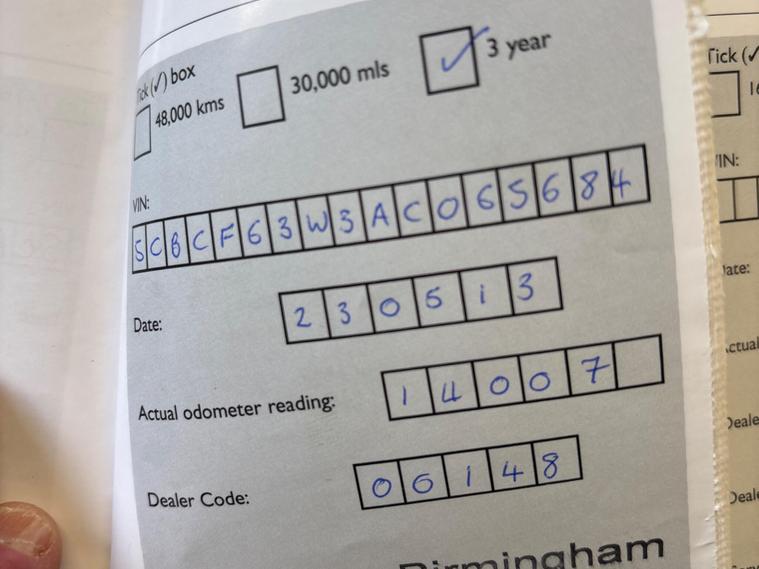 Tick (✓) box
48,000 kms
30,000 mls
✓ 3 year
VIN:
SCBCF63W3AC065684
Date:
230513
Actual odometer reading:
14007
Dealer Code:
06148
Birmingham
Tick (✓
VIN:
Date:
Actual
Deale
Deal